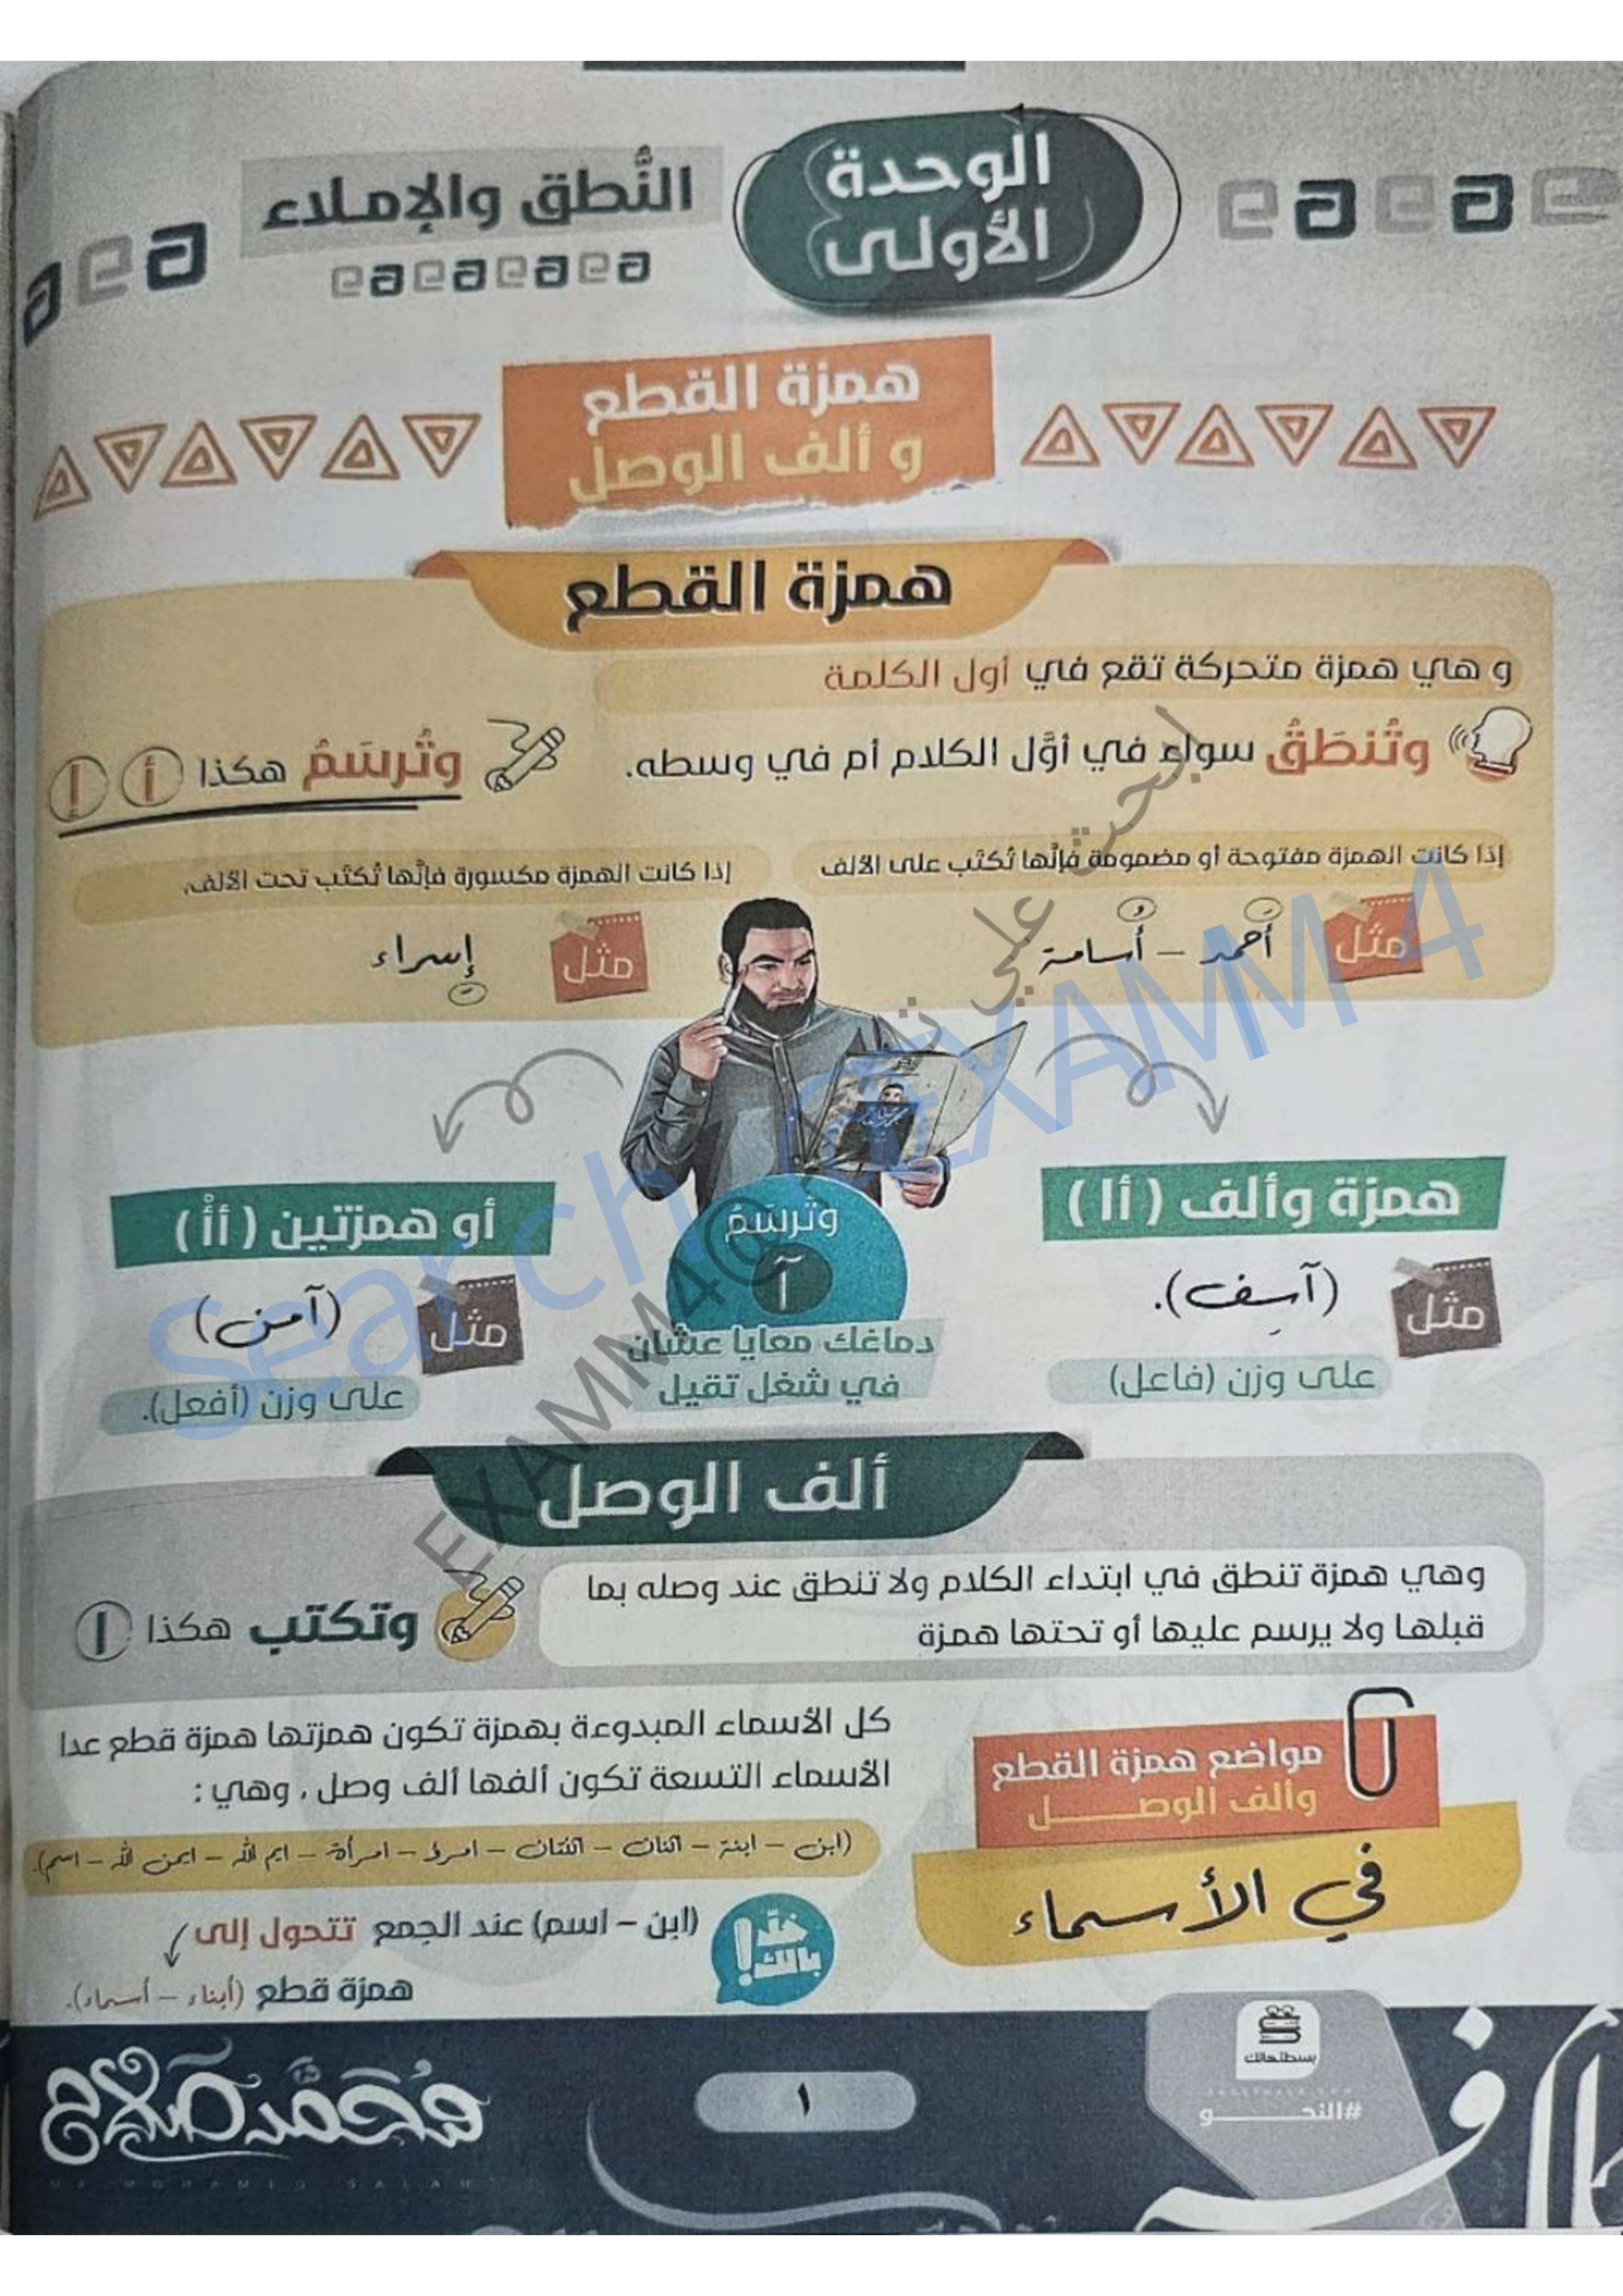 الوحدة
الأولى
النُّطق والإملاء
همزة القطع
و ألف الوصل
همزة القطع
و هي همزة متحركة تقع في أول الكلمة
وتُنطَقُ سواء في أوَّل الكلام أم في وسطه.
وتُرسَمُ هكذا أ إ
إذا كانت الهمزة مفتوحة أو مضمومة فإنَّها تُكتَب على الألف
إذا كانت الهمزة مكسورة فإنَّها تُكتَب تحت الألف.
مثل
أَحمد – أُسامة
مثل
إِسراء
همزة وألف (أا)
أو همزتين (أأْ)
وتُرسَمُ
آ
مثل
(آسِف).
على وزن (فاعل)
مثل
(آمن)
على وزن (أفعل).
دماغك معايا عشان
في شغل تقيل
ألف الوصل
وهي همزة تنطق في ابتداء الكلام ولا تنطق عند وصله بما
قبلها ولا يرسم عليها أو تحتها همزة
وتكتب هكذا ا
مواضع همزة القطع
وألف الوصــــــل
في الأسماء
كل الأسماء المبدوءة بهمزة تكون همزتها همزة قطع عدا
الأسماء التسعة تكون ألفها ألف وصل ، وهي :
(ابن – ابنة – اثنان – اثنتان – امرؤ – امرأة – ايم الله – ايمن الله – اسم).
خلّي بالك!
(ابن – اسم) عند الجمع تتحول إلى
همزة قطع (أبناء – أسماء).
بسطتهالك
#النحـــــــو
١
محمد صلاح
MR MOHAMED SALAH
Search @EXAMM4
EXAMM4@ ابحث علي